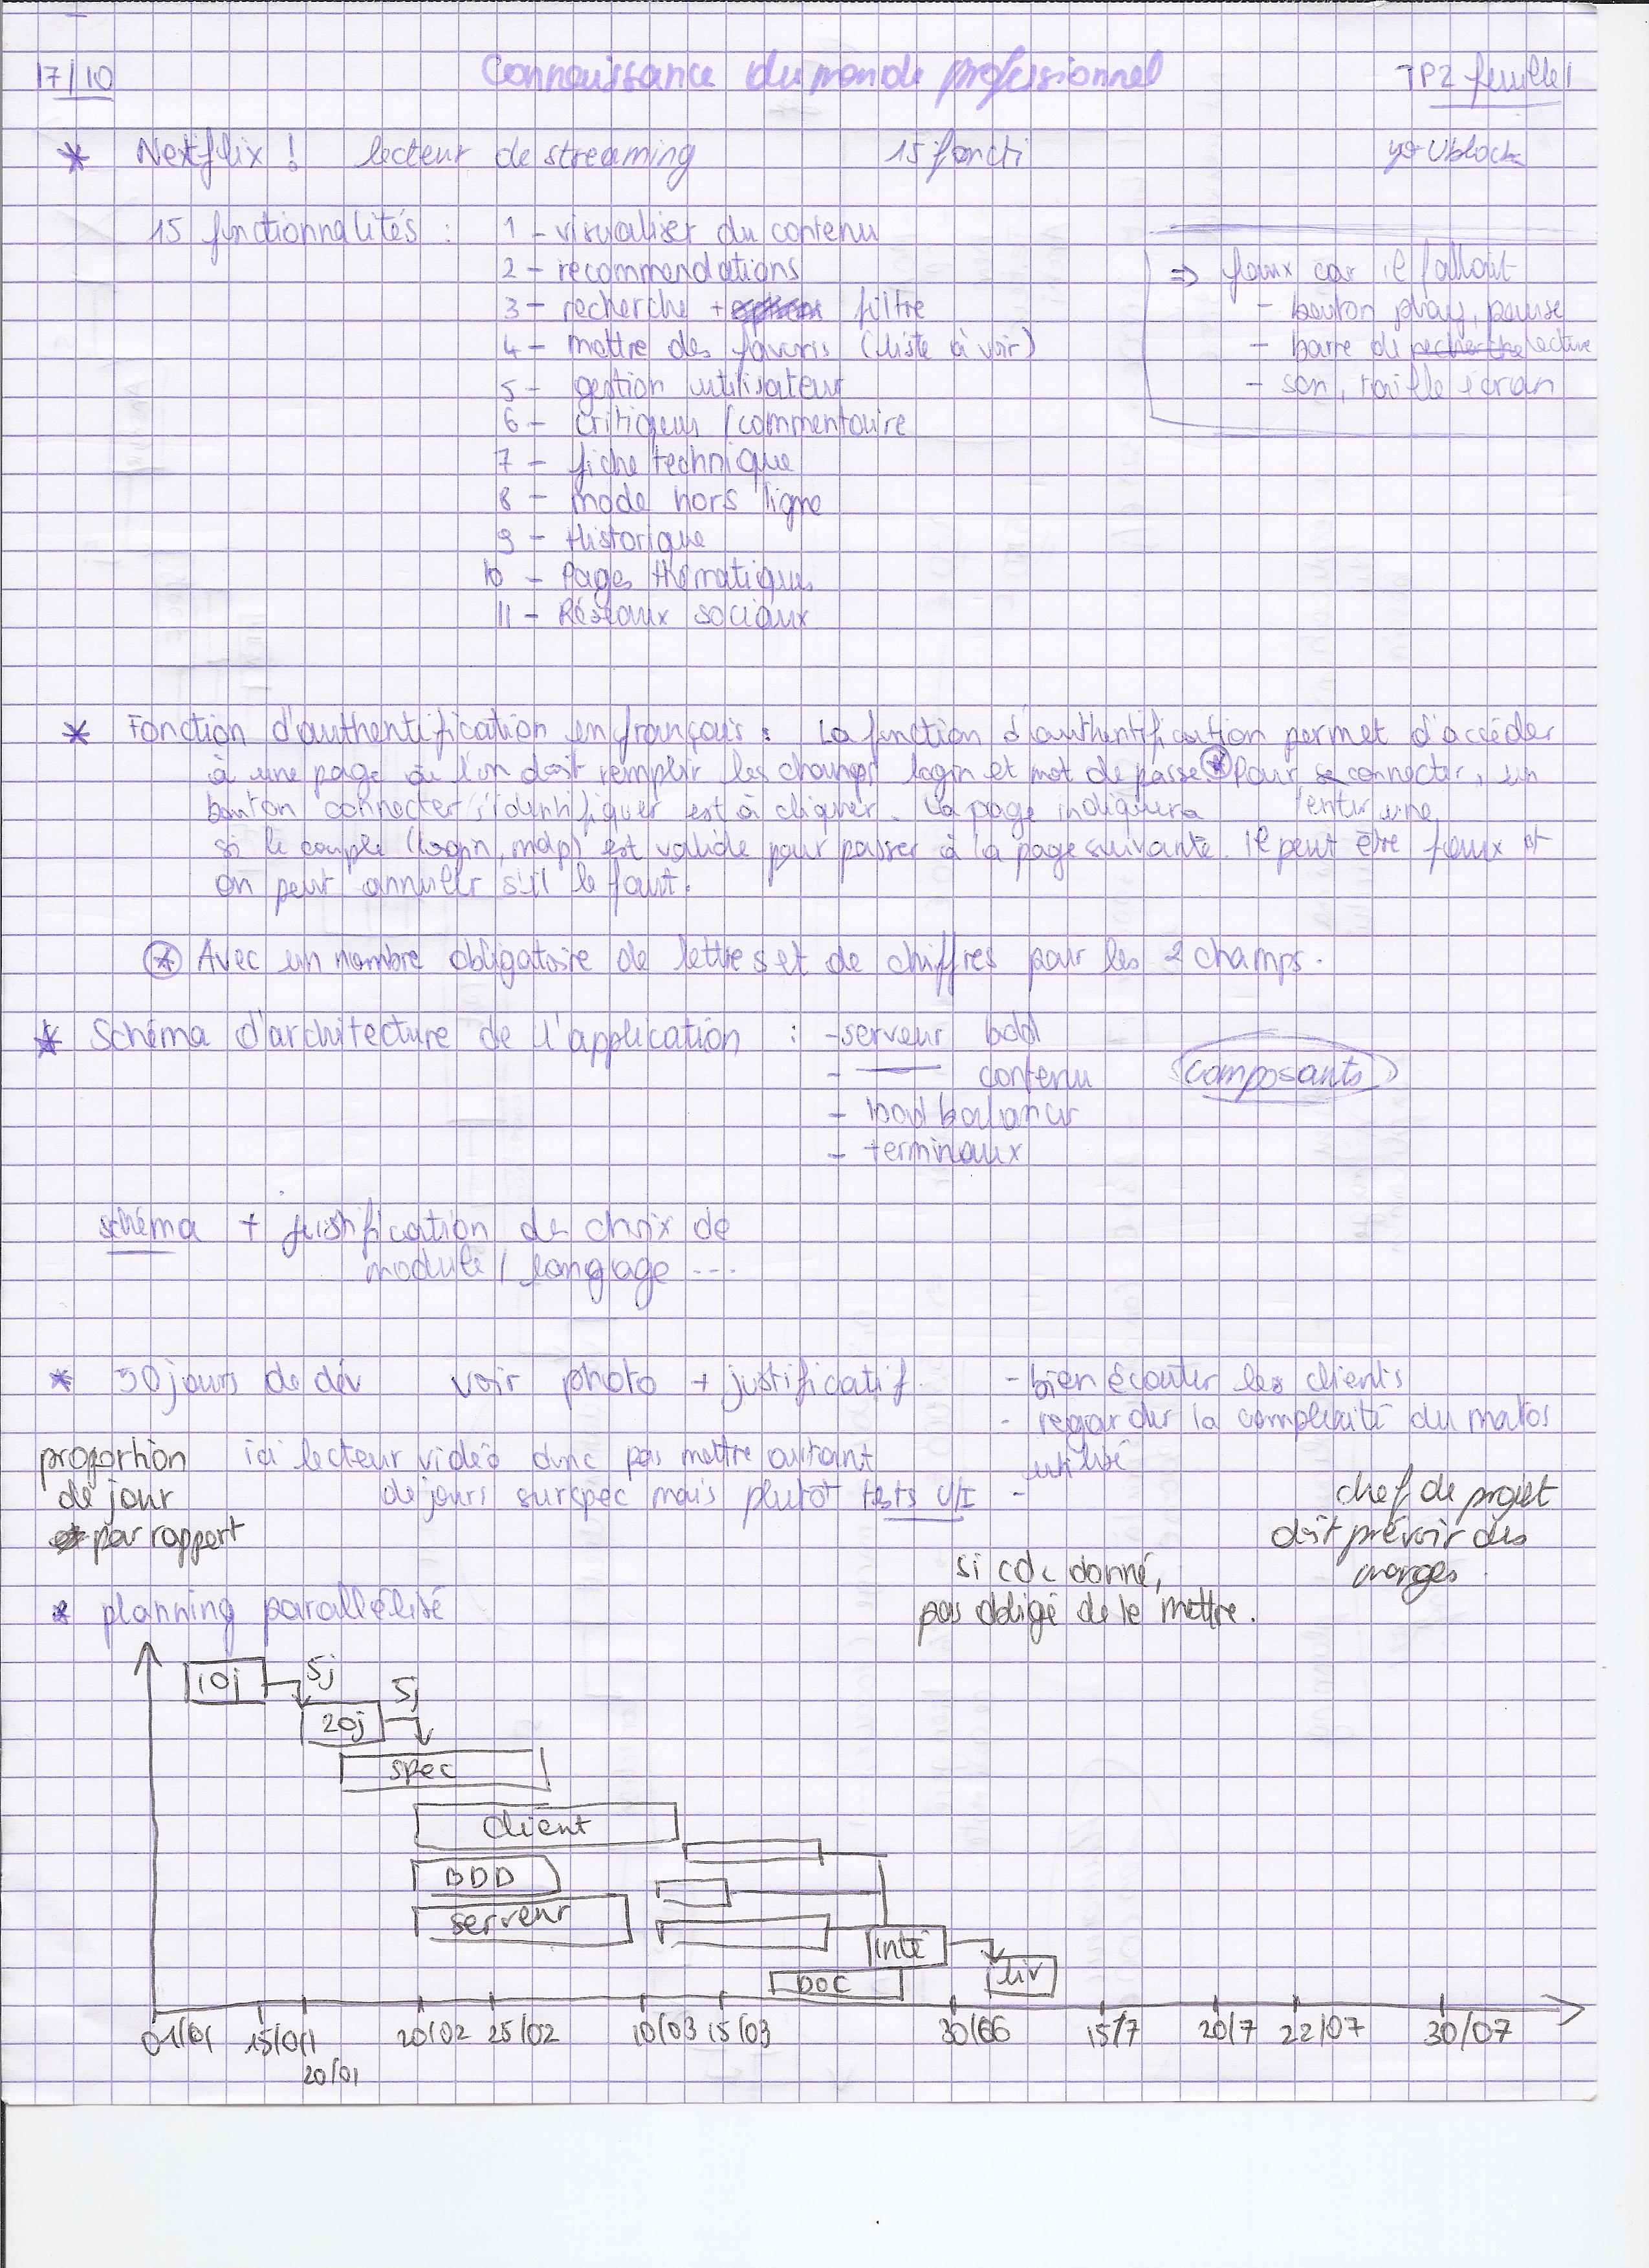 17/10 Connaissance du monde professionnel TP2 feuille 1
* Nextflix ! lecteur de streaming 15 foncti Ublock
15 functionnalités : 1 - visualiser du contenu
2 - recommendations
3 - recherche + filtre
4 - mettre des favoris (liste à voir)
5 - gestion utilisateur
6 - critiques / commentaire
7 - fiche technique
8 - mode hors ligne
9 - Historique
10 - Pages thématiques
11 - Réseaux sociaux
⇒ faux car il fallait
- bouton play, pause
- barre de recherche lecture
- son, taille écran
* Fonction d'authentification en français : La fonction d'authentification permet d'accéder
à une page où l'on doit remplir les champs login et mot de passe. * Pour se connecter, un
bouton connecter / s'identifiquer est à cliquer. La page indiquera
si le couple (login, mdp) est valide pour passer à la page suivante. Il peut être faux et
on peut annuler s'il le faut.
* Avec un nombre obligatoire de lettres et de chiffres pour les 2 champs.
* Schéma d'architecture de l'application : - serveur bdd
- —— contenu
- load balancer
- terminaux
composants
schéma + justification de choix de
module / langage ---
* 50 jours de dév voir photo + justificatif
- bien écouter les clients
- regarder la complexité du matos
utilisé
-
proportion
de jour
par rapport
ici lecteur vidéo donc pas mettre autant
de jours sur spec mais plutôt tests U/I
chef de projet
doit prévoir des
marges.
si cdc donné,
pas obligé de le mettre.
* planning parallélisé
10j 5j
20j 5j
spec
client
BDD
serveur
inté
DOC liv
01/01 15/01 20/02 25/02 10/03 15/03 30/06 15/7 20/7 22/07 30/07
20/01